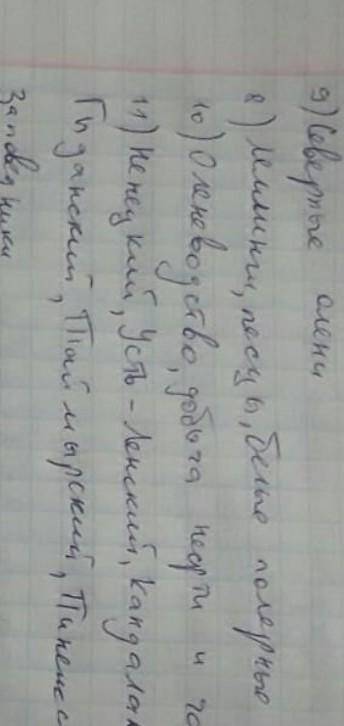 9) Северные олени
8) Лемминги, песцы, белые полярные
10) Оленеводство, добыча нефти и га
11) Ненецкий, Усть-Ленский, Кандалак
Гиданский, Таймырский, Пинежс
заповедники